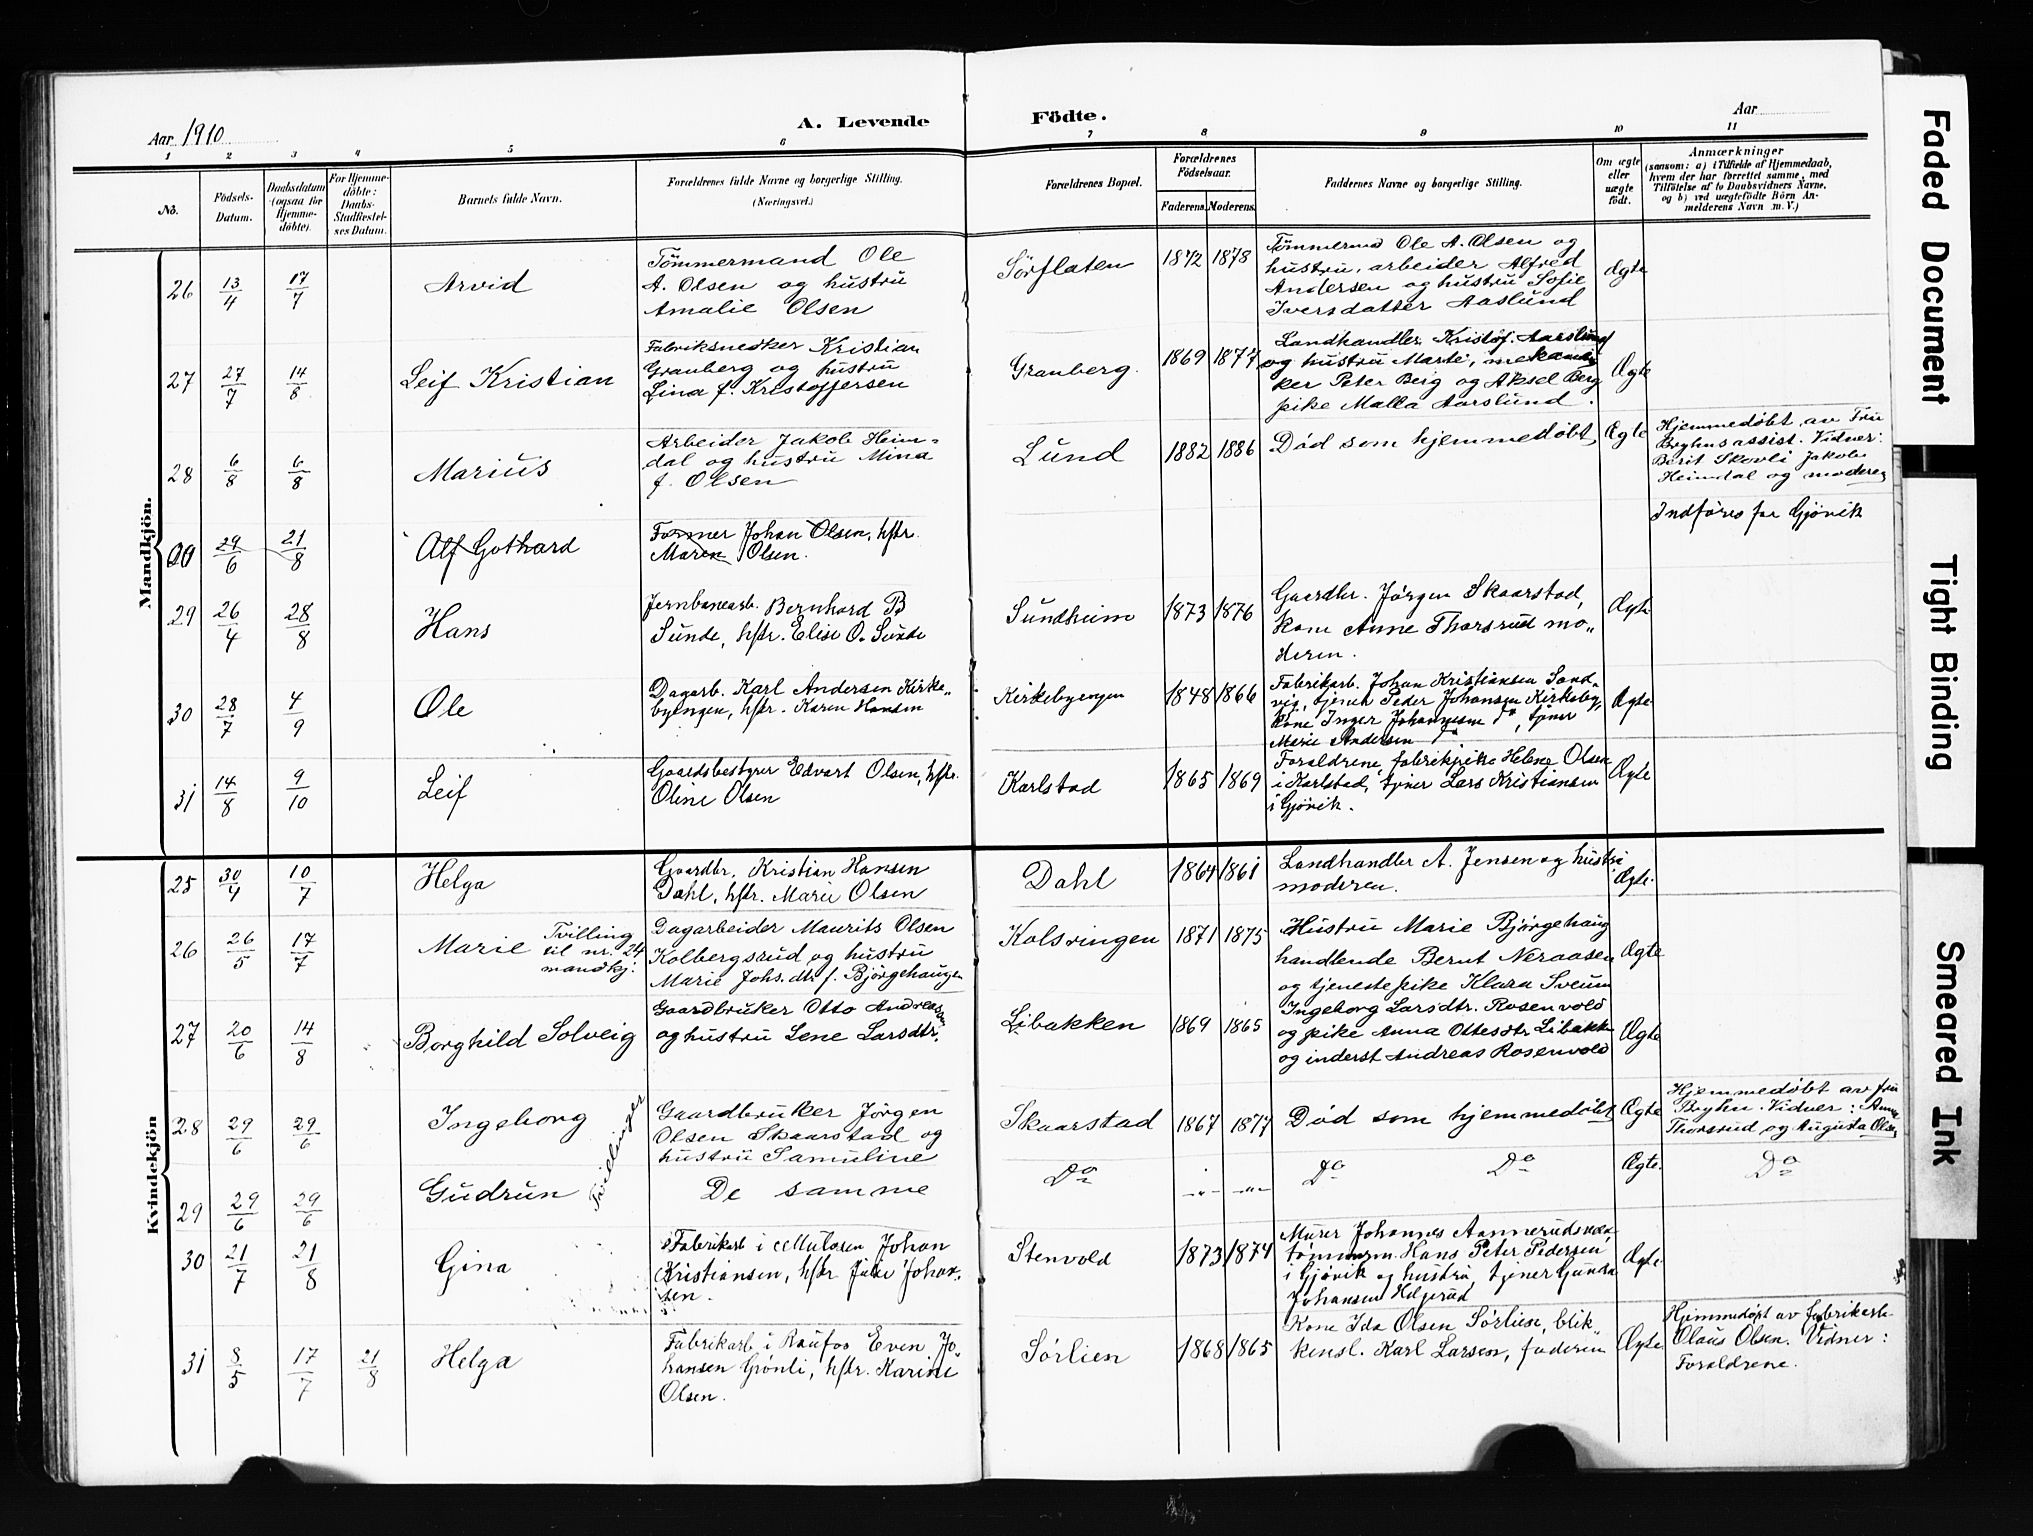 Aar 1910
A. Levende Födte.
Aar
1 2 3 4 5 6 7 8 9 10 11
No.
Födsels-Datum.
Daabsdatum (ogsaa for Hjemme-döbte).
For Hjemme-döbte: Daabs-Stadfæstel-ses Datum.
Barnets fulde Navn.
Forældrenes fulde Navne og borgerlige Stilling.
(Næringsvei.)
Forældrenes Bopæl.
Forældrenes Födselsaar.
Faderens. Moderens.
Faddernes Navne og borgerlige Stilling.
Om ægte eller uægte født.
Anmærkninger
(saasom: a) i Tilfælde af Hjemmedaab, hvem der har forrettet samme, med Tilföielse af to Daabsvidners Navne, og b) ved uægtefödte Börn Anmelderens Navn m. V.)
Mandkjön.
26 13/4 17/7 Arvid
Tömmermand Ole
A. Olsen og hustru
Amalie Olsen
Sörflaten 1872 1878
Tömmermd Ole A. Olsen og
hustru, arbeider Alfred
Andersen og hustru Sofie
Iversdatter Aaslund
Ægte
27 27/7 14/8 Leif Kristian
Fabriksnedker Kristian
Granberg og hustru
Lina f. Kristoffersen
Granberg. 1869 1877
Landhandler Kristof. Aarslund
og hustru Marte, mekani
ker Peter Berg og Aksel Berg
pike Malla Aarslund.
Ægte
28 6/8 6/8 Marius
Arbeider Jakob Heim=
dal og hustru Mina
f. Olsen
Lund 1882 1886
Død som hjemmedøbt
Ægte
Hjemmedøbt av Fru
Bryhns assist. Vidner:
Berit Skovli Jakob
Heimdal og moderen
29/6 21/8 Alf Gothard
Former Johan Olsen, hstr.
Maren Olsen.
Indföres for Gjövik
29 26/4 28/8 Hans
Jernbanearb. Bernhard B
Sunde, hstr. Elise O. Sunde
Sundheim 1873 1876
Gaardbr. Jörgen Skaarstad,
Kone Anne Thorsrud mo„
deren.
Ægte
30 28/7 4/9 Ole
Dagarb. Karl Andersen Kirke„
byengen, hstr. Karen Hansen
Kirkebyengen 1848 1866
Fabrikarb. Johan Kristiansen Sand„
vig, tjener Peder Johansen Kirkeby,
Kone Inger Johannesen do, tjener
Marie Andersen
Ægte
31 14/8 9/10 Leif
Gaardsbestyrer Edvart Olsen, hstr.
Oline Olsen
Karlstad 1865 1869
Foraldrene, fabrikpike Helene Olsen
i Karlstad, tjener Lars Kristiansen
i Gjövik.
Ægte
Kvindekjön
25 30/4 10/7 Helga
Gaardbr. Kristian Hansen
Dahl, hstr. Marie Olsen
Dahl 1864 1861
Landhandler A. Jensen og hustru
moderen.
Ægte.
26 26/5 17/7 Marie
Tvilling
til nr. 24
mandkj.
Dagarbeider Maurits Olsen
Kolbergsrud og hustru
Marie Johs.dtr f. Björgehaugen
Kolsvingen 1871 1875
Hustru Marie Björgehaug
handlende Bernt Neraasen
og tjenestepike Klara Sveum
Ægte
27 20/6 14/8 Borghild Solveig
Gaardbruker Otto Andreassen
og hustru Lene Larsdtr.
Libakken 1869 1865
Ingeborg Larsdtr. Rosenvold
og pike Anna Ottesdtr Libakk
og inderst Andreas Rosenvold
Ægte
28 29/6 29/6 Ingeborg
Tvillinger
Gaardbruker Jørgen
Olsen Skaarstad og
hustru Samuline
Skaarstad 1867 1877
Død som hjemmedøbt
Ægte
Hjemmedøbt av fru
Bryhn. Vidner: Anne
Thorsrud og Augusta Olsen
29 29/6 29/6 Gudrun
De samme
Do -„- -„- Do Do
Ægte.
Do
30 21/7 21/8 Gina
Fabrikarb i cellulosen Johan
Kristiansen, hstr Julie Johan„
sen.
Stenvold 1873 1874
Murer Johannes Aannerudsæter
tömmerm. Hans Peter Pedersen
i Gjövik og hustru, tjener Gunda
Johansen Helgerud
Ægte
31 8/5 17/7 21/8 Helga
Fabrikarb i Raufos Even Jo„
hansen Grönli, hstr. Karine
Olsen.
Sörlien 1868 1865
Kone Ida Olsen Sörlien, blik„
kensl. Karl Larsen, faderen
Ægte
Hjemmedøpt av fabrikarb
Olaus Olsen. Vidner:
Foraldrene.
Faded Document
Tight Binding
Smeared Ink